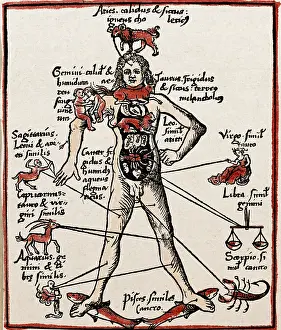 Aries. calidus & siccus
igneus cho lericus
Gemini calid &
humidus ae
reus
sanguineus
Taurus frigidus
& siccus terreo
melancholico
Leo
simil
arieti
Virgo simil
tauro
Sagitarius.
Leoni & ari
simili
Cancer fri
gidus &
humidus
aqueus
flema
ticus.
Capricornus
tauro & vir
gini similis
Libra simil
gemini
Aquarius ge
mini & li
bre similis
Scorpio. si
mil cancro
Pisces similes
Cancro.